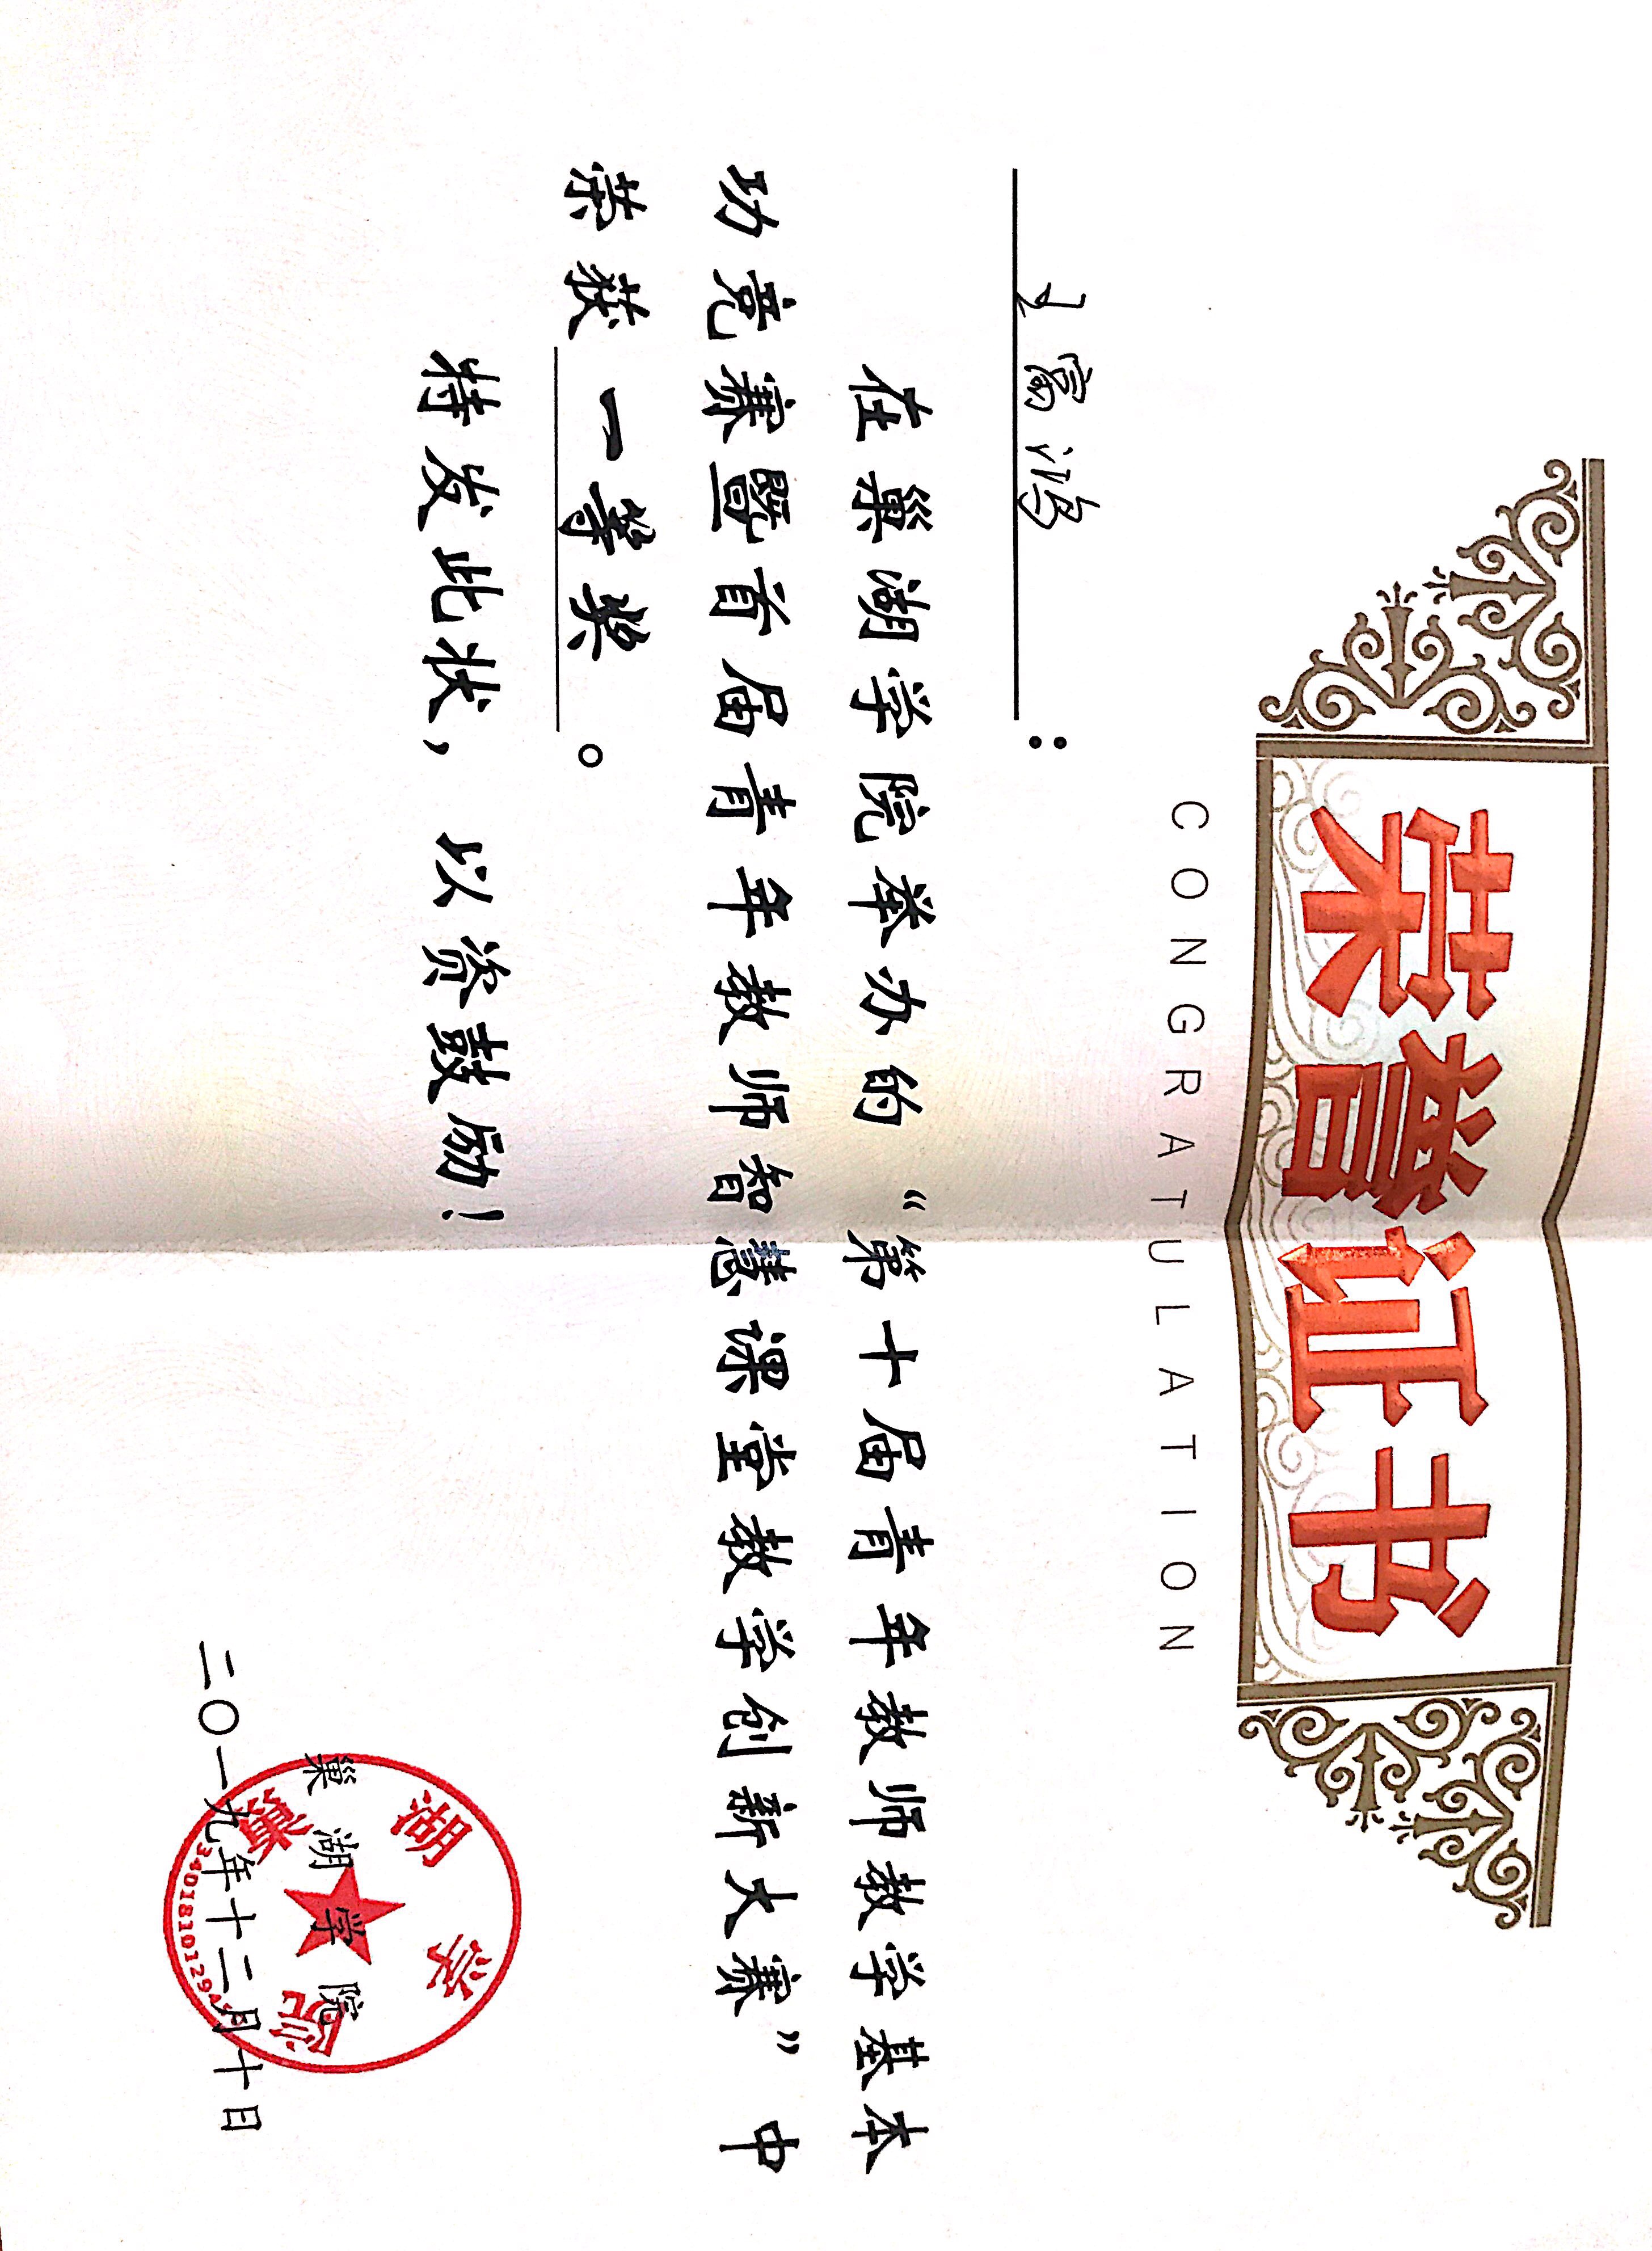 荣誉证书
CONGRATULATION
王富鸿：
在巢湖学院举办的“第十届青年教师教学基本
功竞赛暨首届青年教师智慧课堂教学创新大赛”中
荣获 一等奖 。
特发此状，以资鼓励！
巢湖学院
二〇一九年十二月十日
巢湖学院